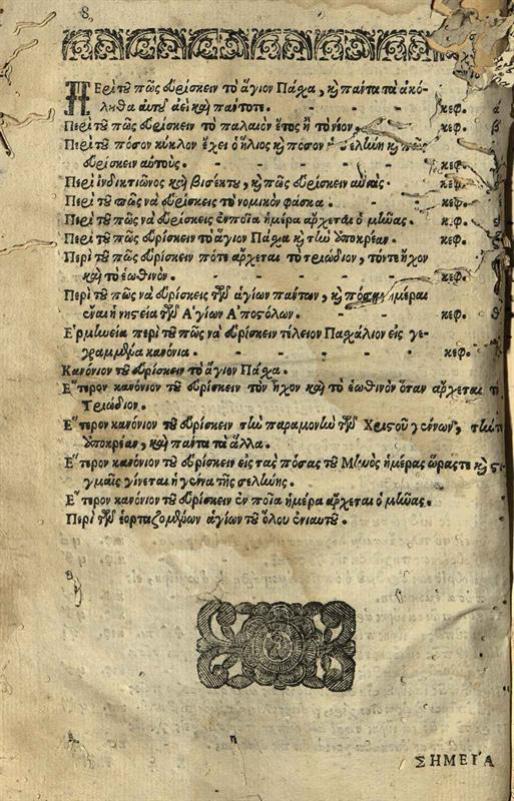 8
ΠΕρὶ τοῦ πῶς εὑρίσκειν τὸ ἅγιον Πάχα, καὶ πάντα τὰ ἀκό-
λουθα αὐτοῦ ἀεὶ καὶ πάντοτε. κεφ. ά
Περὶ τοῦ πῶς εὑρίσκειν τὸ παλαιὸν ἔτος ἢ τὸ νέον. κεφ. β
Περὶ τοῦ πόσον κύκλον ἔχει ὁ ἥλιος καὶ πόσον σελήνη καὶ πῶς
εὑρίσκειν αὐτούς. κεφ.
Περὶ ἰνδικτιῶνος καὶ βισέκτου, καὶ πῶς εὑρίσκειν αὐτάς. κεφ.
Περὶ τοῦ πῶς νὰ εὑρίσκεις τὸ νομικὸν φάσκα. κεφ.
Περὶ τοῦ πῶς νὰ εὑρίσκεις ἐν ποία ἡμέρα ἄρχεται ὁ μήνας. κεφ.
Περὶ τοῦ πῶς εὑρίσκειν τὸ ἅγιον Πάχα καὶ τὴν ἀποκρέαν. κεφ.
Περὶ τοῦ πῶς εὑρίσκειν πότε ἄρχεται τὸ τριώδιον, τόν τε ἦχον
καὶ τὸ ἑωθινόν. κεφ.
Περὶ τοῦ πῶς νὰ εὑρίσκεις τῶν ἁγίων πάντων, καὶ πόσαι ἡμέραι
εἶναι ἡ νηστεία τῶν Ἁγίων Ἀποστόλων. κεφ. θ
Ἑρμηνεία περὶ τοῦ πῶς νὰ εὑρίσκειν τέλειον Πασχάλιον εἰς γε-
γραμμένα κανόνια. κεφ.
Κανόνιον τοῦ εὑρίσκειν τὸ ἅγιον Πάχα.
Ἕτερον κανόνιον τοῦ εὑρίσκειν τὸν ἦχον καὶ τὸ ἑωθινὸν ὅταν ἄρχεται τὸ
Τριώδιον.
Ἕτερον κανόνιον τοῦ εὑρίσκειν τὴν παραμονὴν τῶν Χριστοῦ γενῶν, τὴν
ἀποκρέαν, καὶ πάντα τὰ ἄλλα.
Ἕτερον κανόνιον τοῦ εὑρίσκειν εἰς τὰς πόσας τοῦ Μηνὸς ἡμέρας ὥρας τε καὶ στι
γμαῖς γίνεται ἡ γένα τῆς σελήνης.
Ἕτερον κανόνιον τοῦ εὑρίσκειν ἐν ποία ἡμέρα ἄρχεται ὁ μήνας.
Περὶ τῶν ἑορταζομένων ἁγίων τοῦ ὅλου ἐνιαυτοῦ.
ΣΗΜΕΙ͂Α